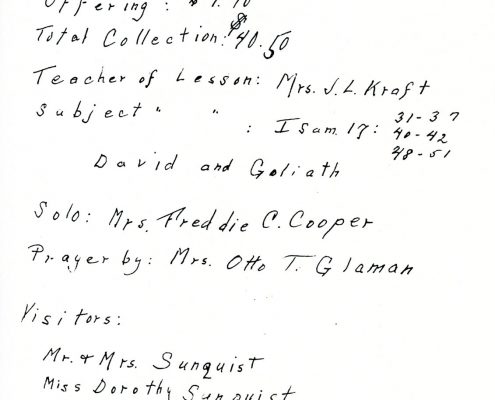 Offering: $
Total Collection: $40.50
Teacher of Lesson: Mrs. J. L. Kraft
Subject " " : I Sam. 17: 31-37
40-42
48-51
David and Goliath
Solo: Mrs. Freddie C. Cooper
Prayer by: Mrs. Otto T. Glaman
Visitors:
Mr. & Mrs. Sunquist
Miss Dorothy Sunquist